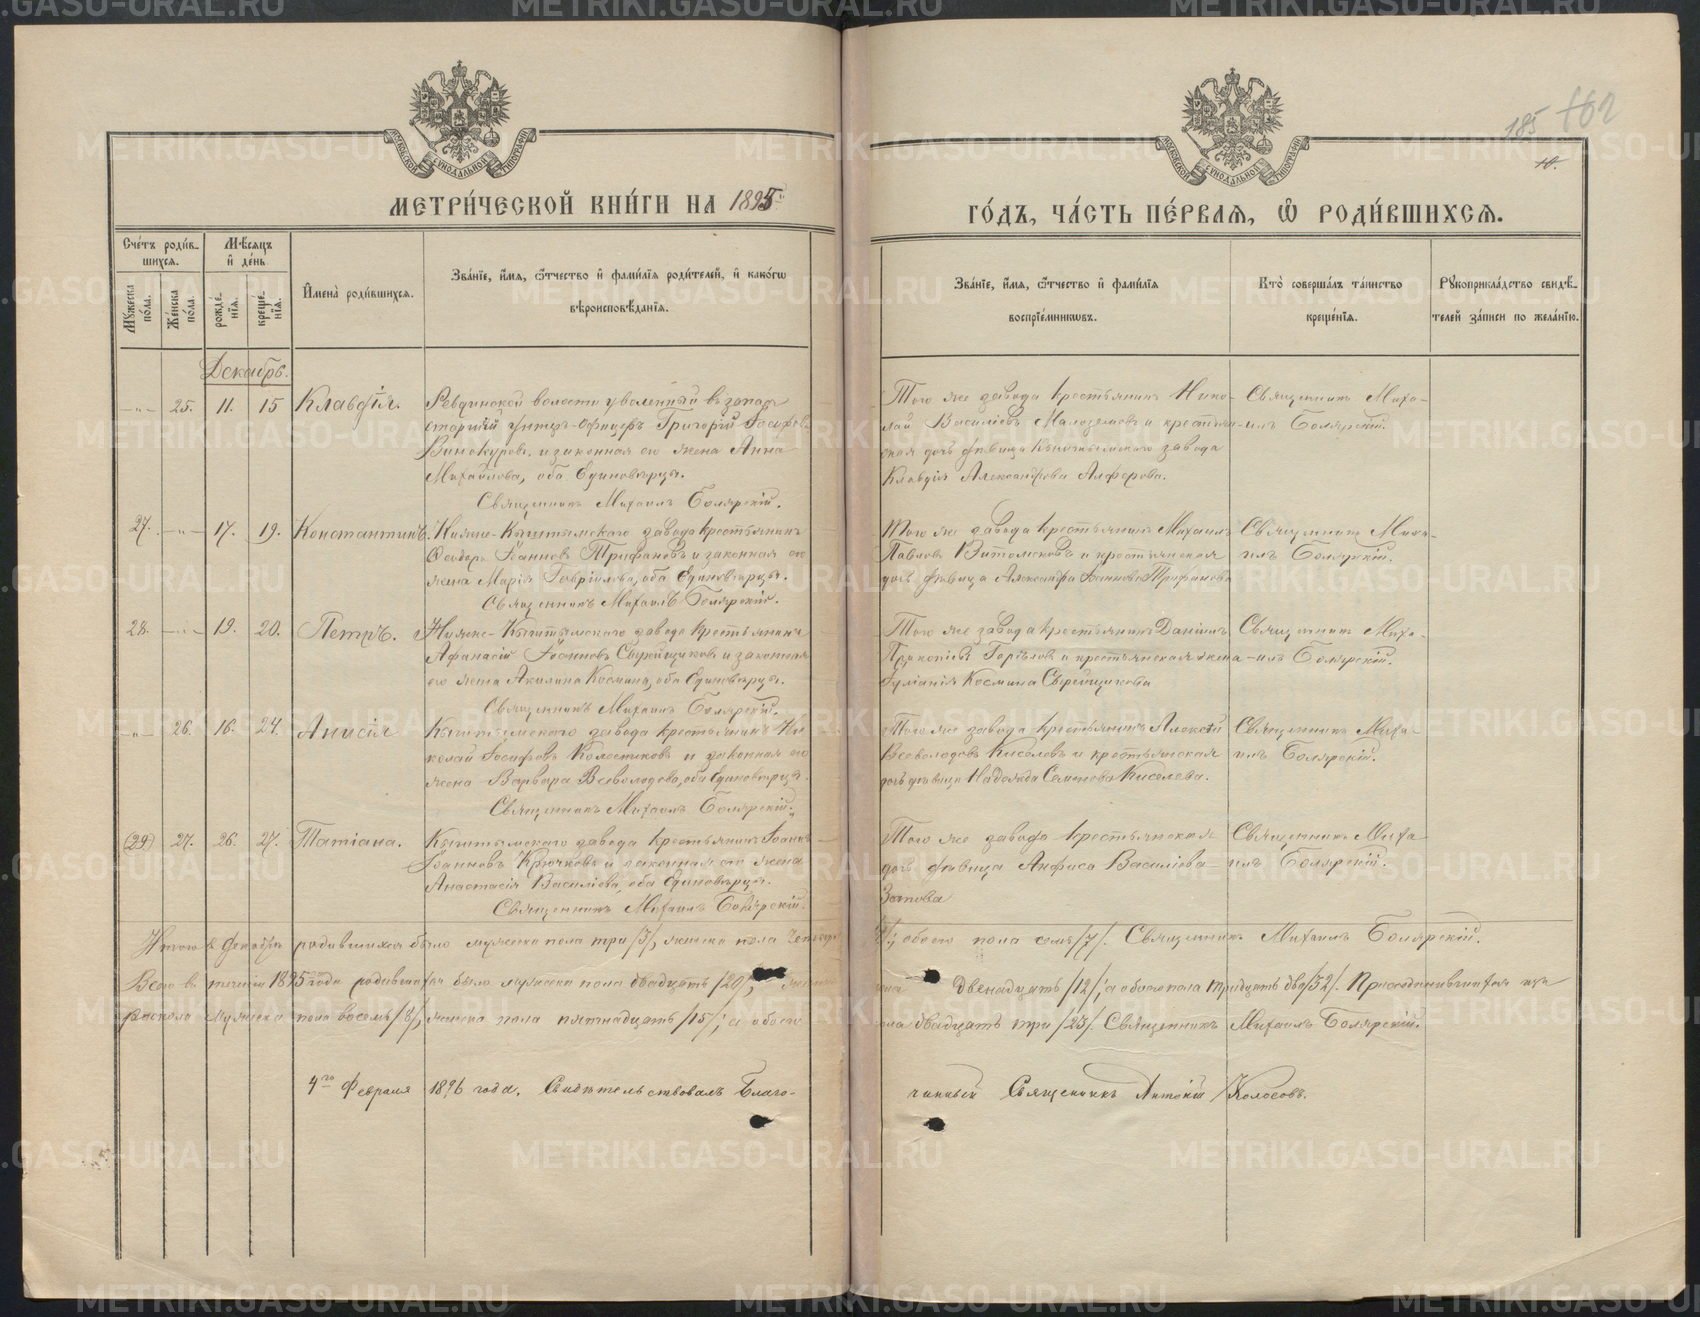 МЕТРИ́ЧЕСКОЙ КНИ́ГИ НА 1895
ГО́ДЪ, ЧА́СТЬ ПЕ́РВАЯ, Ѡ РОДИ́ВШИХСЯ.
185
162
Сче́тъ роди́в-
шихся.
Мѣ́сяцъ
и де́нь
Мужеска по́ла.
Же́нска по́ла.
рожде́-нїя.
креще́-нїя.
Имена̀ роди́вшихся.
Зва́нїе, и́мя, ѻ́тчество и фами́лїя роди́телей, и како́гѡ
вѣроисповѣ́данїя.
Зва́нїе, и́мя, ѻ́тчество и фами́лїя
воспрїе́мниковъ.
Кто̀ соверша́лъ та́инство
креще́нїя.
Рукоприкла́дство свидѣ́-
телей за́писи по жела́нїю.
Декабрь.
25. 11. 15 Клавдія. Ревдинской волости уволенный въ запас
старшій унтеръ-офицеръ Григорій Іосифов
Винокуровъ и законная его жена Анна
Михайлова, оба Единовѣрцы.
Священникъ Михаилъ Боярскій.
Того же завода крестьянинъ Нико-
лай Василіевъ Малоземовъ и крестьян-
ская дочь дѣвица Кыштымскаго завода
Клавдія Александрова Алферова.
Священникъ Миха-
илъ Боярскій.
27. 17. 19. Константинъ. Нижне-Кыштымскаго завода крестьянинъ
Феодоръ Іоанновъ Трифановъ и законная его
жена Марія Гавріилова, оба Единовѣрцы.
Священникъ Михаилъ Боярскій.
Того же завода крестьянинъ Михаилъ
Павловъ и крестьянская
дочь дѣвица Александра Іоаннова Трифанова
Священникъ Миха-
илъ Боярскій.
28. 19. 20. Петръ. Нижне-Кыштымскаго завода крестьянинъ
Афанасій Іоанновъ Сырейщиковъ и законная
его жена Акилина Космина, оба Единовѣрцы.
Священникъ Михаилъ Боярскій.
Того же завода крестьянинъ Даніилъ
Прокопіевъ и крестьянская жена
Іуліанія Космина Сырейщикова
Священникъ Миха-
илъ Боярскій.
26. 16. 24. Анисія Кыштымскаго завода крестьянинъ Ни-
колай Іосифовъ Колостиковъ и законная его
жена Варвара Всеволодова, оба Единовѣрцы.
Священникъ Михаилъ Боярскій.
Того же завода крестьянинъ Алексѣй
Всеволодовъ Киселевъ и крестьянская
дочь дѣвица Надежда Семенова Киселева.
Священникъ Миха-
илъ Боярскій.
(29) 27. 26. 27. Татіана. Кыштымскаго завода крестьянинъ Іоаннъ
Іоанновъ Крючковъ и законная его жена
Анастасія Василіева, оба Единовѣрцы.
Священникъ Михаилъ Боярскій.
Того же завода крестьянская
дочь дѣвица Анфиса Василіева
Зотова
Священникъ Миха-
илъ Боярскій.
Итого въ Декабрѣ родившихся было мужеска пола три /3/, женска пола четыре /4/; обоего пола семь /7/. Священникъ Михаилъ Боярскій.
Всего въ теченіи 1895 года родившихся было мужеска пола двадцать /20/, женска пола двенадцать /12/; а обоего пола тридцать два /32/. Присоединившихся изъ
раскола мужеска пола восемь /8/, женска пола пятнадцать /15/; а обоего пола двадцать три /23/. Священникъ Михаилъ Боярскій.
4го Февраля 1896 года. Свидѣтельствовалъ Благо-
чинный Священникъ Антоній Колосовъ.
METRIKI.GASO-URAL.RU